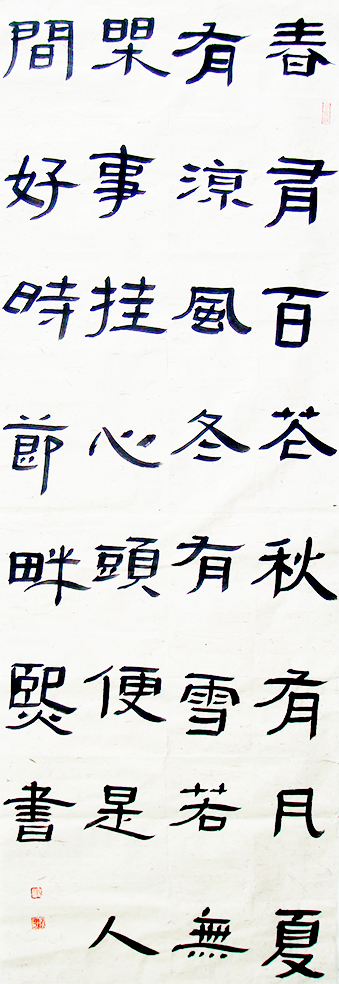 春有百花秋有月夏
有涼風冬有雪若無
閑事挂心頭便是人
間好時節畔熙書